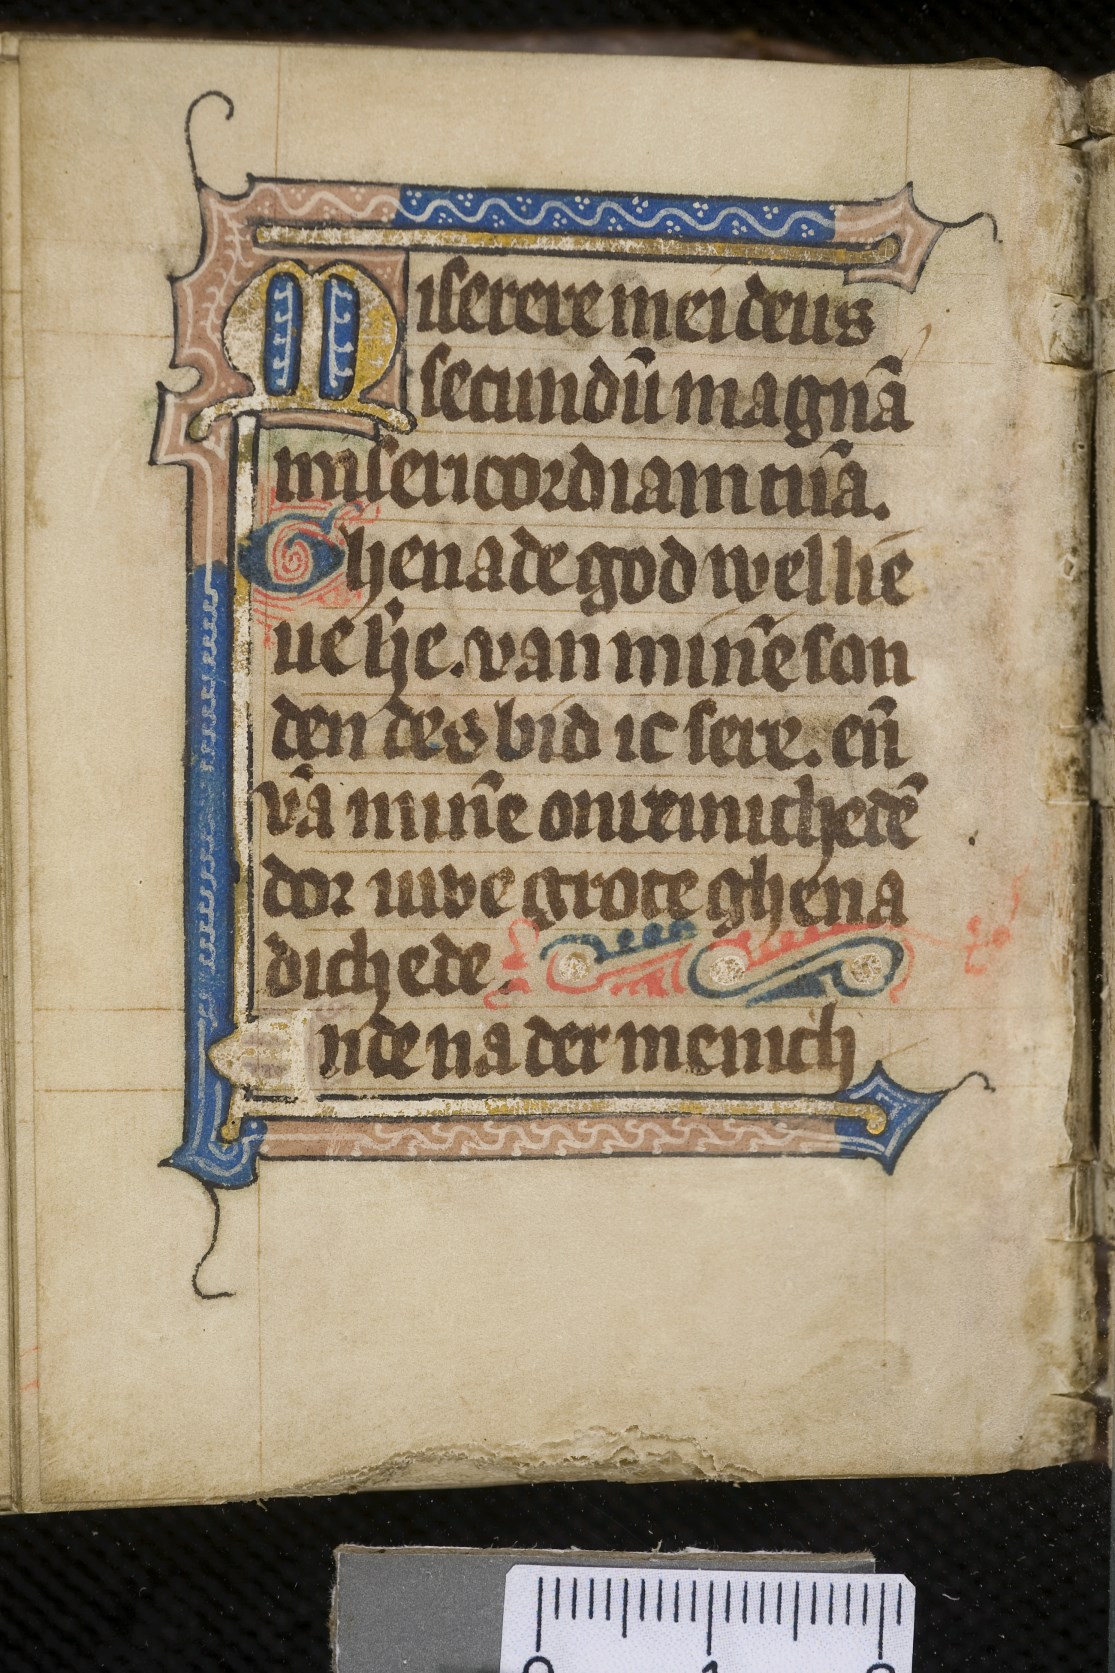 Miserere mei deus
secundu̅ magna̅
misericordiam tua̅.
Ghenade god wel lie
ue h̕e. van min̅e son
den des bid ic sere. en̅
va̅ min̅e onreinichede̅
dor uwe grote ghena
dichede.
nde na der menich
0 1 2